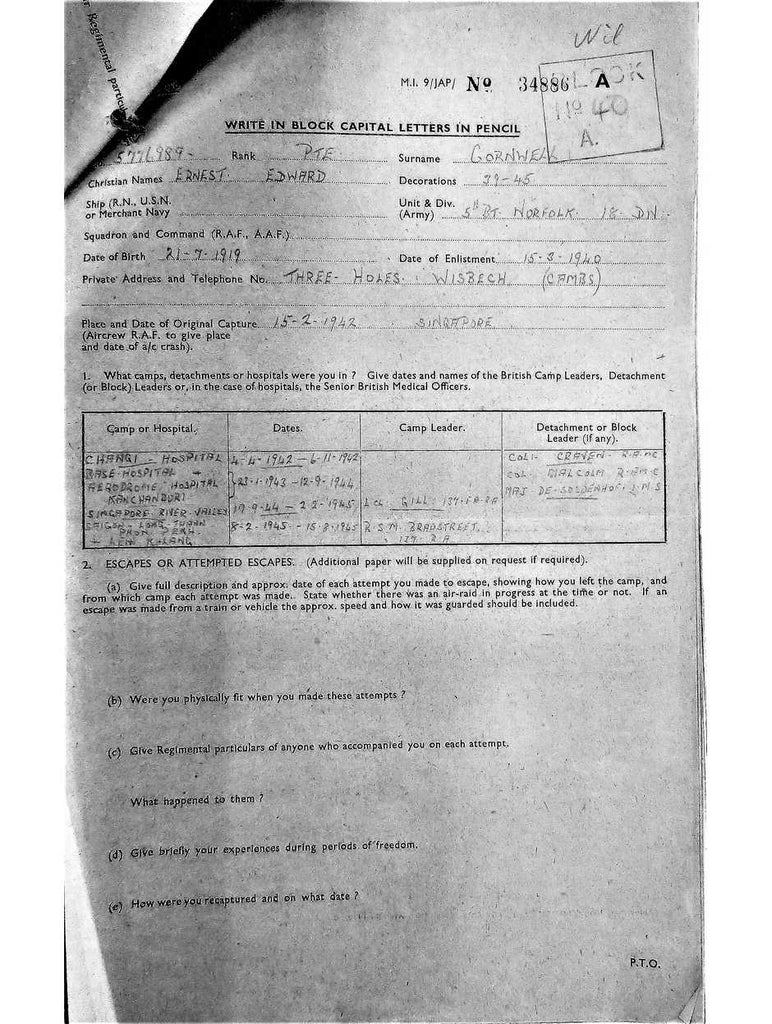 Wil
Regimental particu
M.I. 9/JAP/ No 34886 A
BLOCK
No 40
A.
WRITE IN BLOCK CAPITAL LETTERS IN PENCIL
5776989 Rank PTE Surname CORNWELL
Christian Names ERNEST EDWARD Decorations 39-45
Ship (R.N., U.S.N. or Merchant Navy
Unit & Div. (Army) 5TH BT NORFOLK 18 DIV.
Squadron and Command (R.A.F., A.A.F.)
Date of Birth 21-7-1919 Date of Enlistment 15-3-1940
Private Address and Telephone No. THREE-HOLES. WISBECH (CAMBS)
Place and Date of Original Capture 15-2-1942 SINGAPORE
(Aircrew R.A.F. to give place
and date of a/c crash).
1. What camps, detachments or hospitals were you in ? Give dates and names of the British Camp Leaders, Detachment
(or Block) Leaders or, in the case of hospitals, the Senior British Medical Officers.
Camp or Hospital. Dates. Camp Leader. Detachment or Block Leader (if any).
CHANGI - HOSPITAL 4-4-1942 - 6-11-1942 COL. CRAVEN. R.A.M.C
BASE-HOSPITAL + COL. MALCOLM R.A.M.C
AERODROME HOSPITAL 23-1-1943 - 12-9-1944 MAJ. DE-
KANCHANBURI
SINGAPORE RIVER VALLEY 17-9-44 - 2-2-1945 GILL. 137.
SAIGON - 8-2-1945 - 15-8-1945 R.S.M. BRADSTREET.
137. R.A
2. ESCAPES OR ATTEMPTED ESCAPES. (Additional paper will be supplied on request if required).
(a) Give full description and approx. date of each attempt you made to escape, showing how you left the camp, and
from which camp each attempt was made. State whether there was an air-raid in progress at the time or not. If an
escape was made from a train or vehicle the approx. speed and how it was guarded should be included.
(b) Were you physically fit when you made these attempts ?
(c) Give Regimental particulars of anyone who accompanied you on each attempt.
What happened to them ?
(d) Give briefly your experiences during periods of freedom.
(e) How were you recaptured and on what date ?
P.T.O.